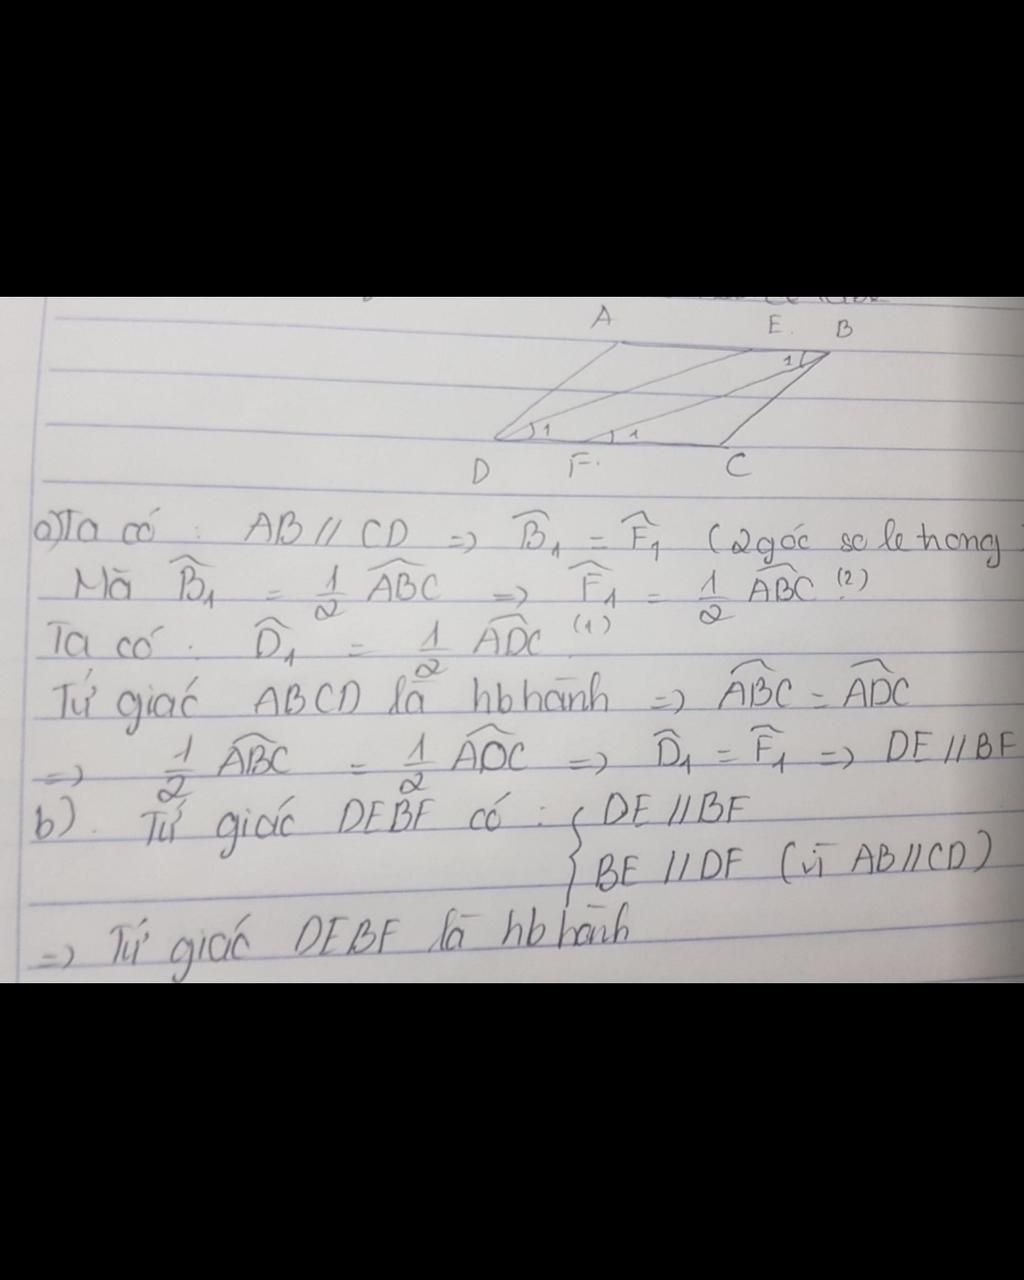 A E. B
1
1 1
D F. C
a) Ta có : AB // CD => B̂₁ = F̂₁ (2 góc so le trong
Mà B̂₁ = 1/2 ÂBC => F̂₁ = 1/2 ÂBC (2)
Ta có : D̂₁ = 1/2 ÂDC (1)
Tứ giác ABCD là hbhành => ÂBC = ÂDC
=> 1/2 ÂBC = 1/2 ÂDC => D̂₁ = F̂₁ => DE // BF
b). Tứ giác DEBF có : { DE // BF
BE // DF (vì AB // CD)
=> Tứ giác DEBF là hbhành